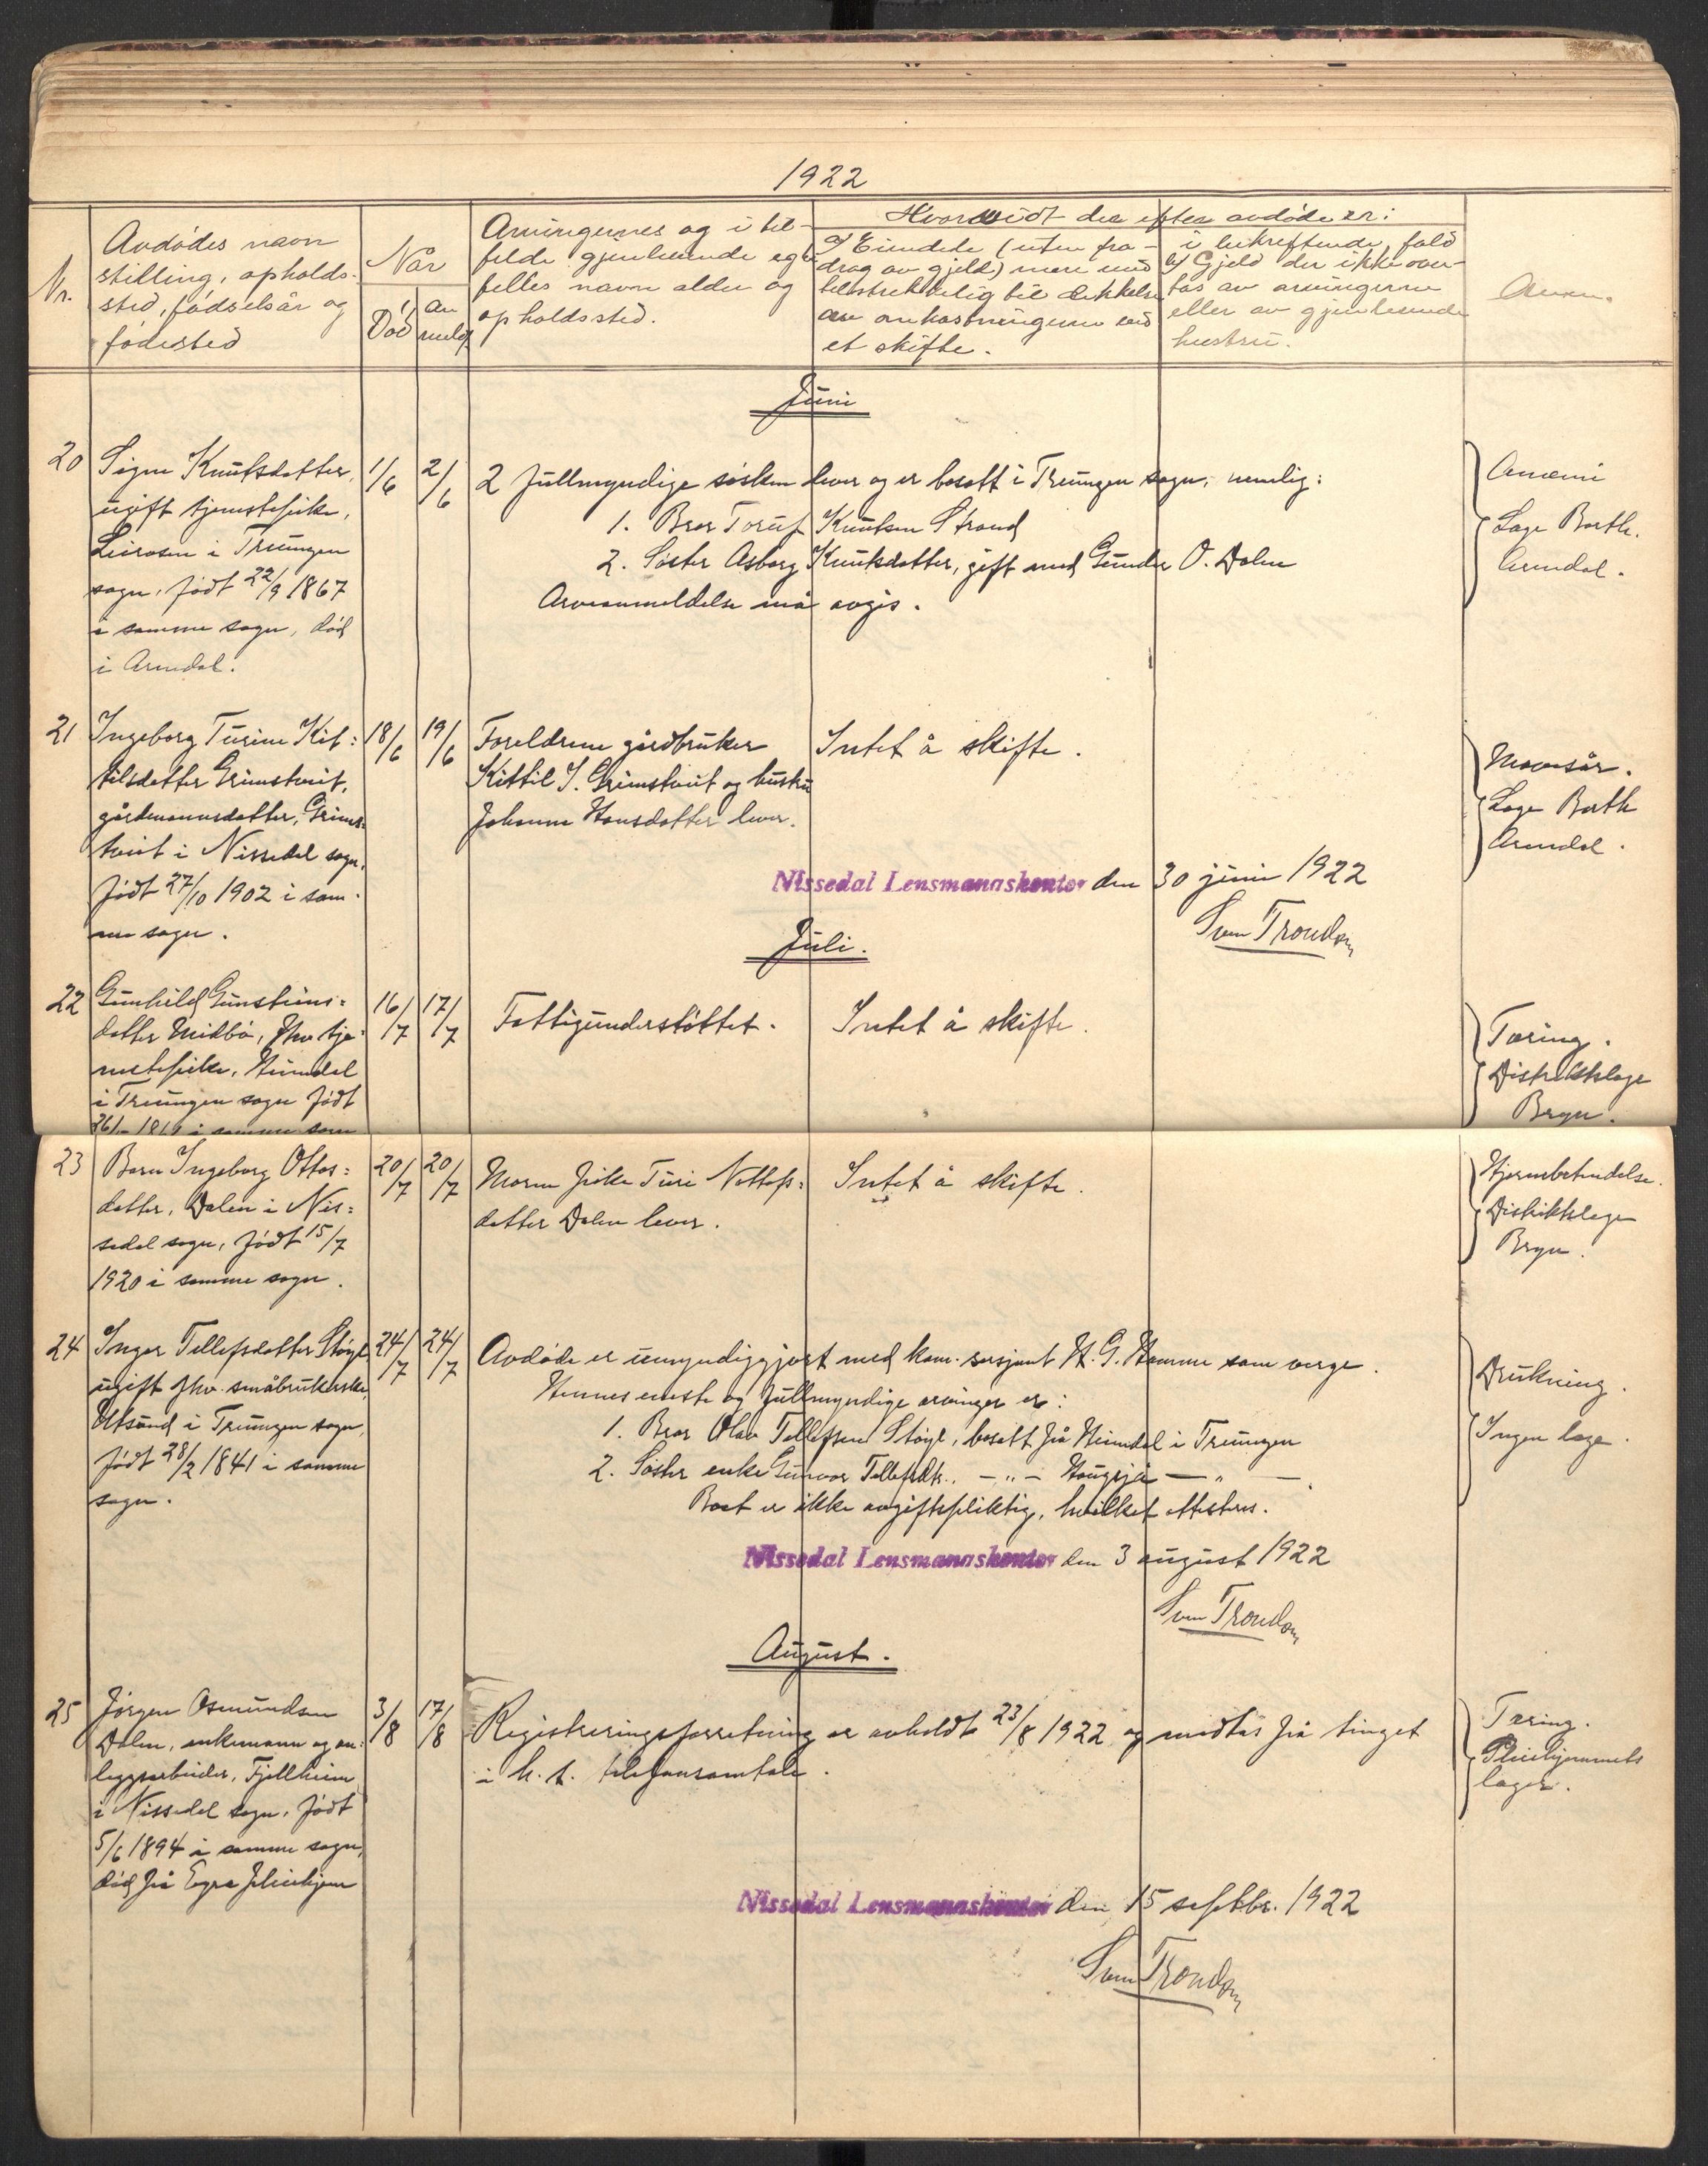 1922
Nr.
Avdødes navn
stilling, opholds-
sted, fødselsår og
fødested
Når
Død
an
meldt
Arvingernes og i til-
felde gjenlevende egte
felles navn alder og
opholdssted.
Hvorvidt der efter avdøde er:
a) Eiendele (uten fra-
drag av gjeld) mere end
tilstrekkelig til dekkelse
av omkostningerne ved
et skifte.
i bekreftende fald
b) Gjeld der ikke over-
tas av arvingerne
eller av gjenlevende
hustru.
Anm.
Juni
20
Signe Knutsdatter,
ugift tjenestepike,
i Treungen
sogn, født 22/9 1867
i samme sogn, død
i Arendal.
1/6
2/6
2 fullmyndige søsken lever og er bosatt i Treungen sogn, nemlig:
1. Bror Knutsen Strand
2. Søster Asborg Knutsdatter, gift med Gunder O. Dalen
Arveanmeldelse må avgis.
Anæmi
Læge Barth.
Arendal.
21
Ingeborg Turine Kit=
tilsdatter Grimstveit,
gårdmannsdatter, Grims=
tveit i Nissedal sogn,
født 27/10 1902 i sam-
me sogn.
18/6
19/6
Foreldrene gårdbruker
Kittil J. Grimstveit og hustru
Johanne Hansdatter lever.
Intet å skifte.
Mavesår.
Læge Barth
Arendal.
Nissedal Lensmannskontor den 30 juni 1922
Sven Trondsen
Juli.
22
Gunhild Gunsteins=
datter Midbø, fhv. tje=
nestepike, Heimdal
i Treungen sogn født
i samme sogn
16/7
17/7
Fattigunderstøttet.
Intet å skifte.
Tæring.
Distriktslæge
Bryn.
23
Barn Ingeborg Ottos=
datter, Dalen i Nis=
sedal sogn, født 15/7
1920 i samme sogn.
20/7
20/7
Moren pike Turi Nottofs=
datter Dalen lever.
Intet å skifte.
Hjernebetendelse.
Distriktslæge
Bryn.
24
Inger Tellefsdatter Støyl,
ugift fhv. småbrukerske,
Utsund i Treungen sogn,
født 28/2 1841 i samme
sogn.
24/7
24/7
Avdøde er umyndiggjort med kom. sersjant H. G. Hamre som verge.
Hennes eneste og fullmyndige arvinger er:
1. Bror Olav Tellefsen Støyl, bosatt på Heimdal i Treungen
2. Søster enke Gunvor Tellefsdtr. — " — Haugsjå — " —
Boet er ikke avgiftspliktig, hvilket attesteres.
Drukning.
Ingen læge.
Nissedal Lensmannskontor den 3 august 1922
Sven Trondsen
August.
25
Jørgen Osmundsen
Dalen, enkemann og an=
leggsarbeider, Fjellheim
i Nissedal sogn, født
5/6 1894 i samme sogn,
død på pleiehjem
3/8
17/8
Registreringsforretning er avholdt 23/8 1922 og mottas på tinget
i h. t. telefonsamtale.
Tæring.
Pleiehjemmets
læge.
Nissedal Lensmannskontor den 15 septbr. 1922
Sven Trondsen